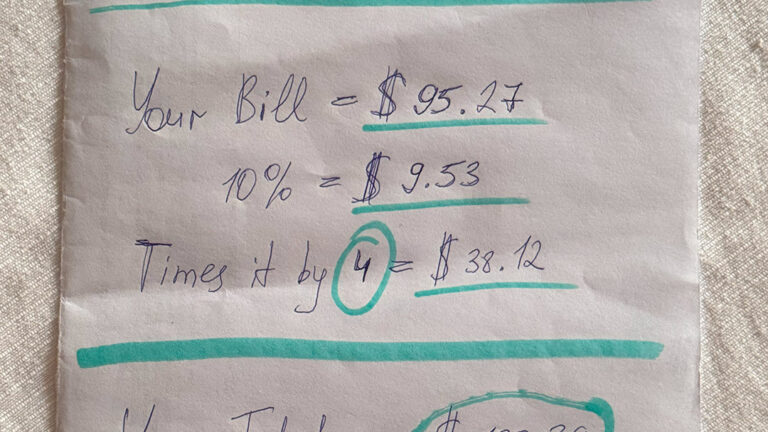 Your Bill = $ 95.27
10% = $ 9.53
Times it by 4 = $ 38.12